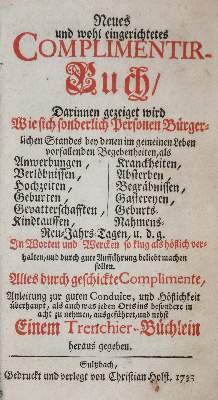 Neues
und wohl eingerichtetes
COMPLIMENTIR-
Buch/
Darinnen gezeiget wird
Wie sich sonderlich Personen Bürger-
lichen Standes bey denen im gemeinen Leben
vorfallenden Begebenheiten, als
Anwerbungen,
Verlöbnissen,
Hochzeiten,
Geburten,
Gevatterschafften,
Kindtauffen,
Kranckheiten,
Absterben
Begräbnissen,
Gastereyen,
Geburts-
Nahmens-
Neu-Jahrs-Tagen, u. d. g.
In Worten und Wercken so klug als höflich ver-
halten, und durch gute Aufführung beliebt machen
sollen.
Alles durch geschickte Complimente,
Anleitung zur guten Conduite, und Höflichkeit
überhaupt, als auch was jeden Orts ins besondere in
acht zu nehmen, ausgeführet, und nebst
Einem Trenchier-Büchlein
heraus gegeben.
Sultzbach,
Gedruckt und verlegt von Christian Holst. 1733